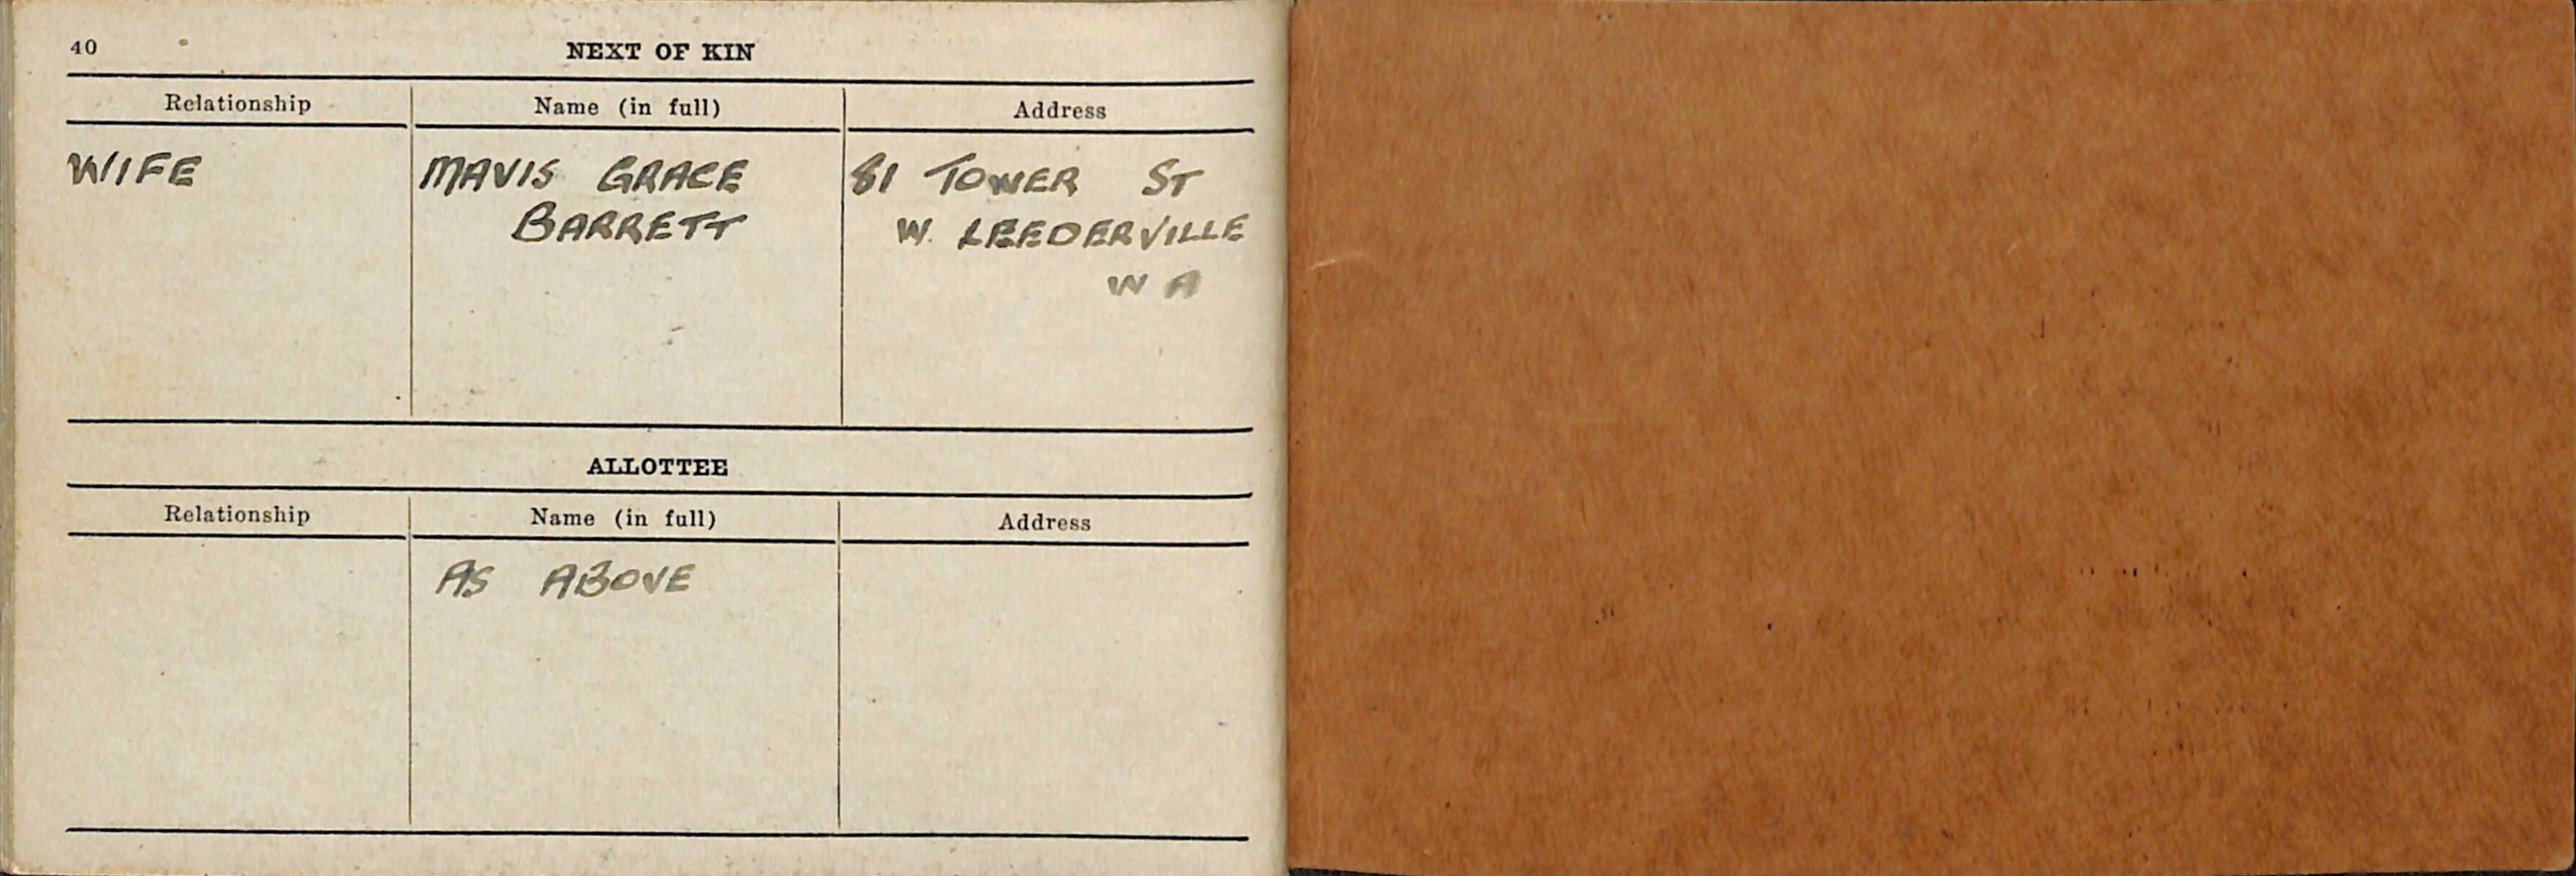 40
NEXT OF KIN
Relationship Name (in full) Address
WIFE MAVIS GRACE 81 TOWER ST
BARRETT W. LEEDERVILLE
W A
ALLOTTEE
Relationship Name (in full) Address
AS ABOVE